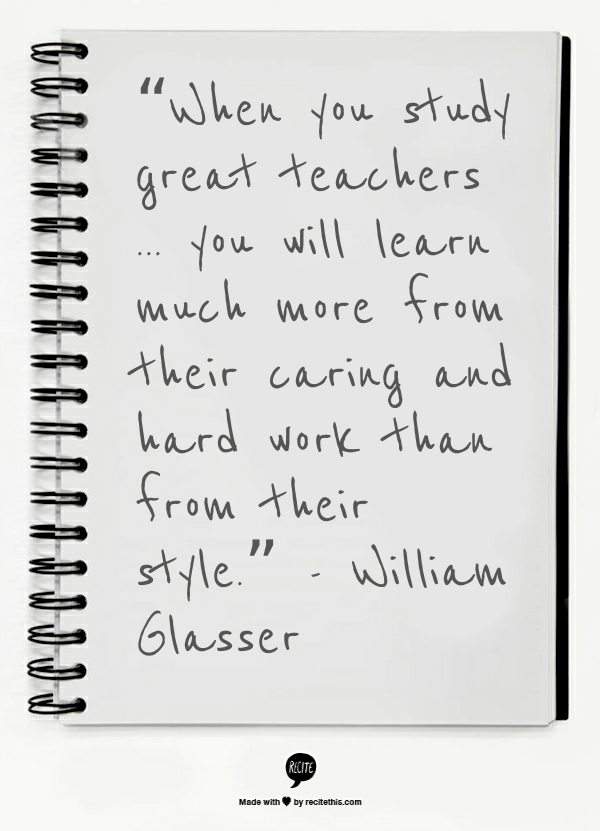 “When you study
great teachers
... you will learn
much more from
their caring and
hard work than
from their
style.” - William
Glasser
RECITE
Made with ♥ by recitethis.com